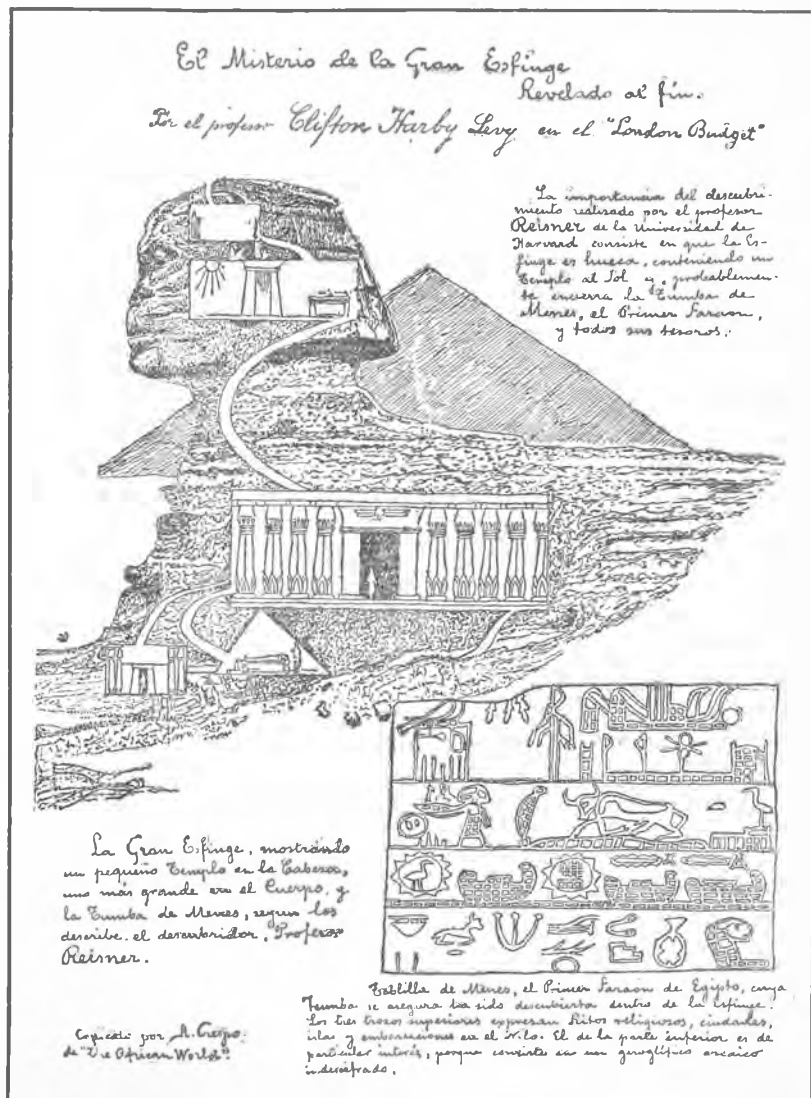 El Misterio de la Gran Esfinge
Revelado al fin.
Por el profesor Clifton Harby Levy en el "London Budget"
La importancia del descubri-
miento realizado por el profesor
Reisner de la Universidad de
Harvard consiste en que la Es-
finge es hueca, conteniendo un
Templo al Sol y, probablemen-
te encierra la Tumba de
Menes, el Primer Faraon,
y todos sus tesoros.
La Gran Esfinge, mostrando
un pequeño Templo en la Cabeza,
uno más grande en el Cuerpo, y
la Tumba de Menes, segun los
describe el descubridor, Profesor
Reisner.
Tablilla de Menes, el Primer Faraon de Egipto, cuya
Tumba se asegura ha sido descubierta dentro de la Esfinge.
Los tres trozos superiores expresan Ritos religiosos, ciudades,
islas y embarcaciones en el Nilo. El de la parte inferior es de
particular interés, porque consiste en un geroglífico arcaico
indescifrado.
Copiado por A. Crespo.
de "The African World".